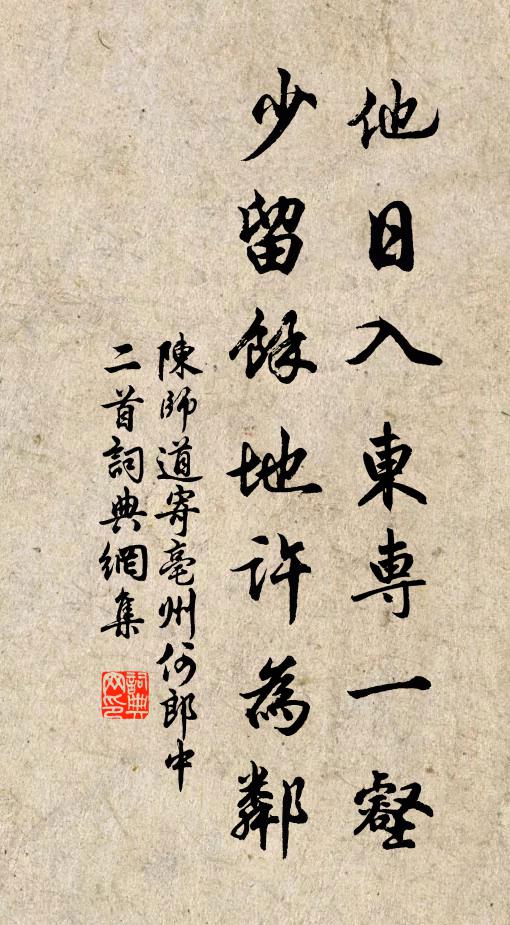 他日入東専一壑
少留餘地許為鄰
陳師道寄亳州何郎中
二首詞典網集
詞典網印